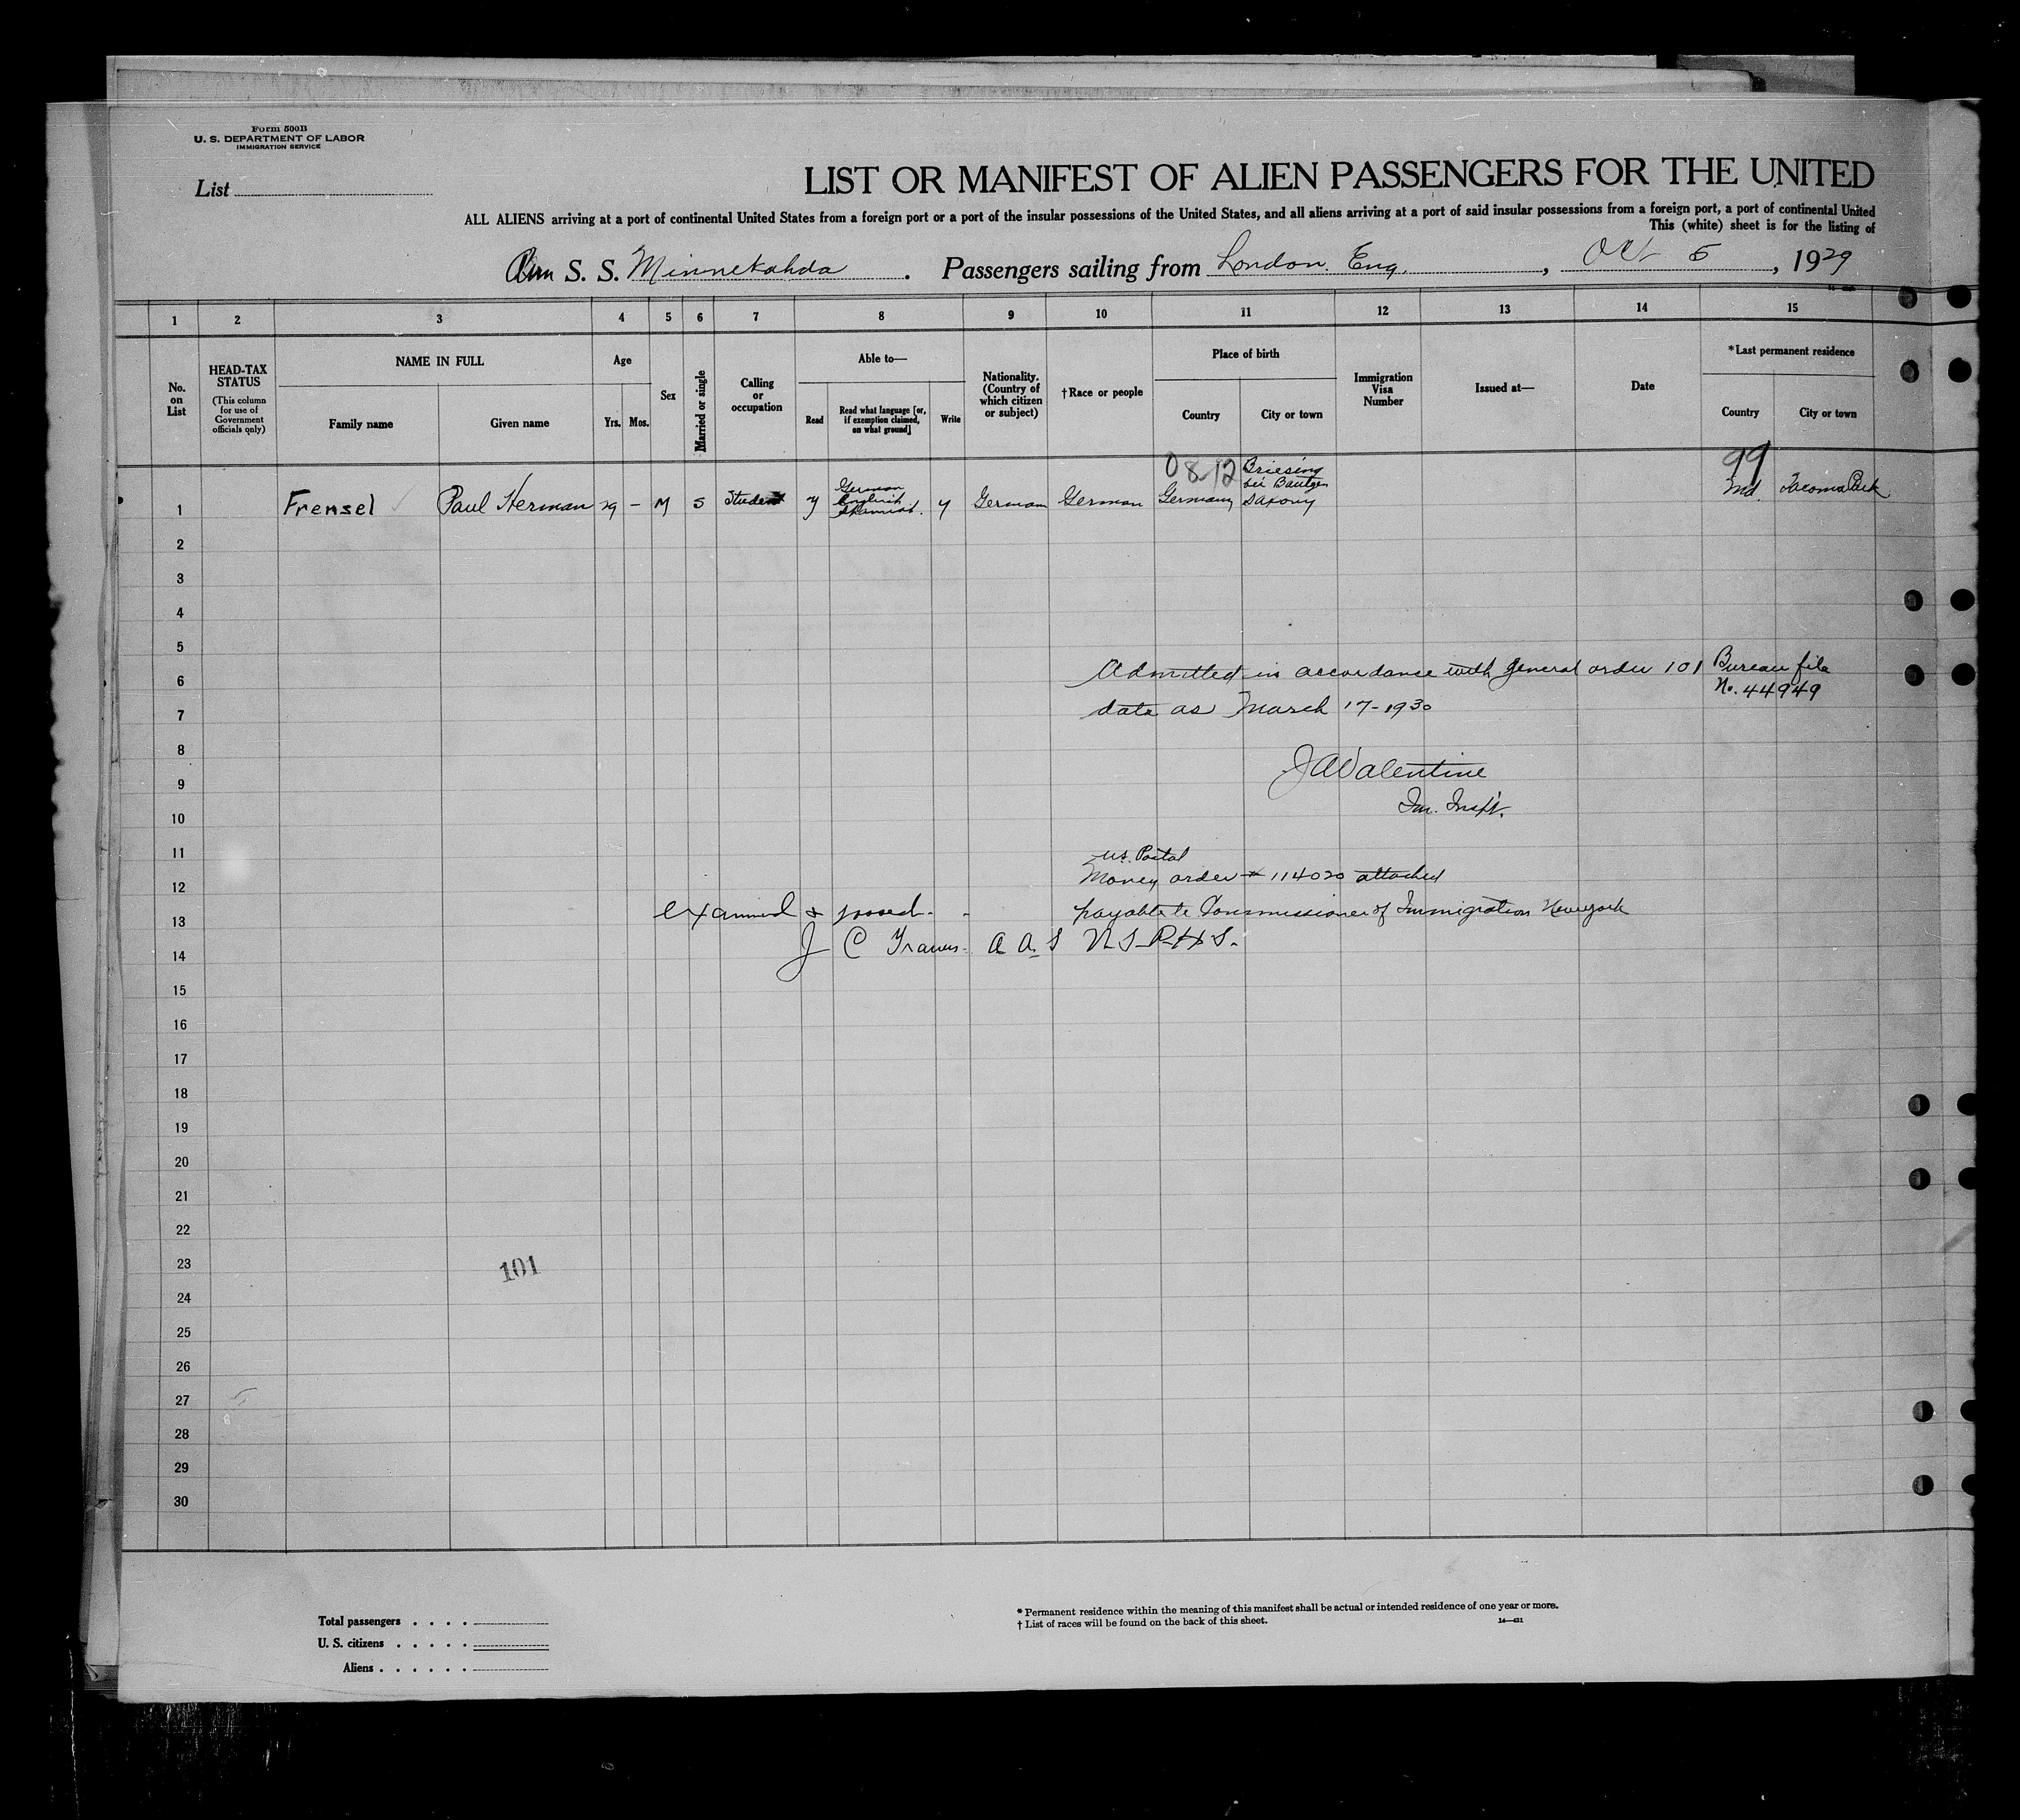 Form 500B
U. S. DEPARTMENT OF LABOR
IMMIGRATION SERVICE
List
LIST OR MANIFEST OF ALIEN PASSENGERS FOR THE UNITED
ALL ALIENS arriving at a port of continental United States from a foreign port or a port of the insular possessions of the United States, and all aliens arriving at a port of said insular possessions from a foreign port, a port of continental United
This (white) sheet is for the listing of
S. S. Minnekahda . Passengers sailing from London. Eng. , Oct 5 , 1929
1 2 3 4 5 6 7 8 9 10 11 12 13 14 15
No. on List
HEAD-TAX STATUS
(This column for use of Government officials only)
NAME IN FULL
Family name
Given name
Age
Yrs.
Mos.
Sex
Married or single
Calling or occupation
Able to—
Read
Read what language [or, if exemption claimed, on what ground]
Write
Nationality. (Country of which citizen or subject)
†Race or people
Place of birth
Country
City or town
Immigration Visa Number
Issued at—
Date
*Last permanent residence
Country
City or town
08-12
99
1 Frensel Paul Herman 29 – M S Student y German English Spanish. y German German Germany Briesing bei Bautzen Saxony Md. Tacoma Park
2
3
4
5
6 Admitted in accordance with general order 101 Bureau file
No. 44949
7 date as March 17-1930
8
JAValentine
9
Im. Inspt.
10
11
U.S. Postal
12 Money order # 114020 attached
13 examined & passed. - payable to Commissioner of Immigration New York
14 J C A A S U S P H S.
15
16
17
18
19
20
21
22
23
101
24
25
26
27
28
29
30
Total passengers . . . .
U. S. citizens . . . . .
Aliens . . . . . .
* Permanent residence within the meaning of this manifest shall be actual or intended residence of one year or more.
† List of races will be found on the back of this sheet.
14—431